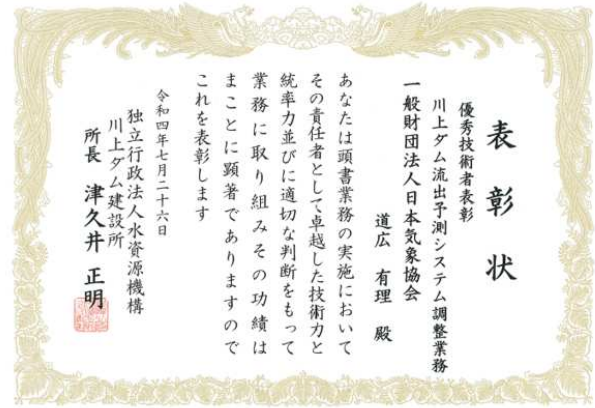 表彰状
優秀技術者表彰
川上ダム流出予測システム調整業務
一般財団法人日本気象協会
道広 有理 殿
あなたは頭書業務の実施において
その責任者として卓越した技術力と
統率力並びに適切な判断をもって
業務に取り組みその功績は
まことに顕著でありますので
これを表彰します
令和四年七月二十六日
独立行政法人水資源機構
川上ダム建設所
所長 津久井 正明